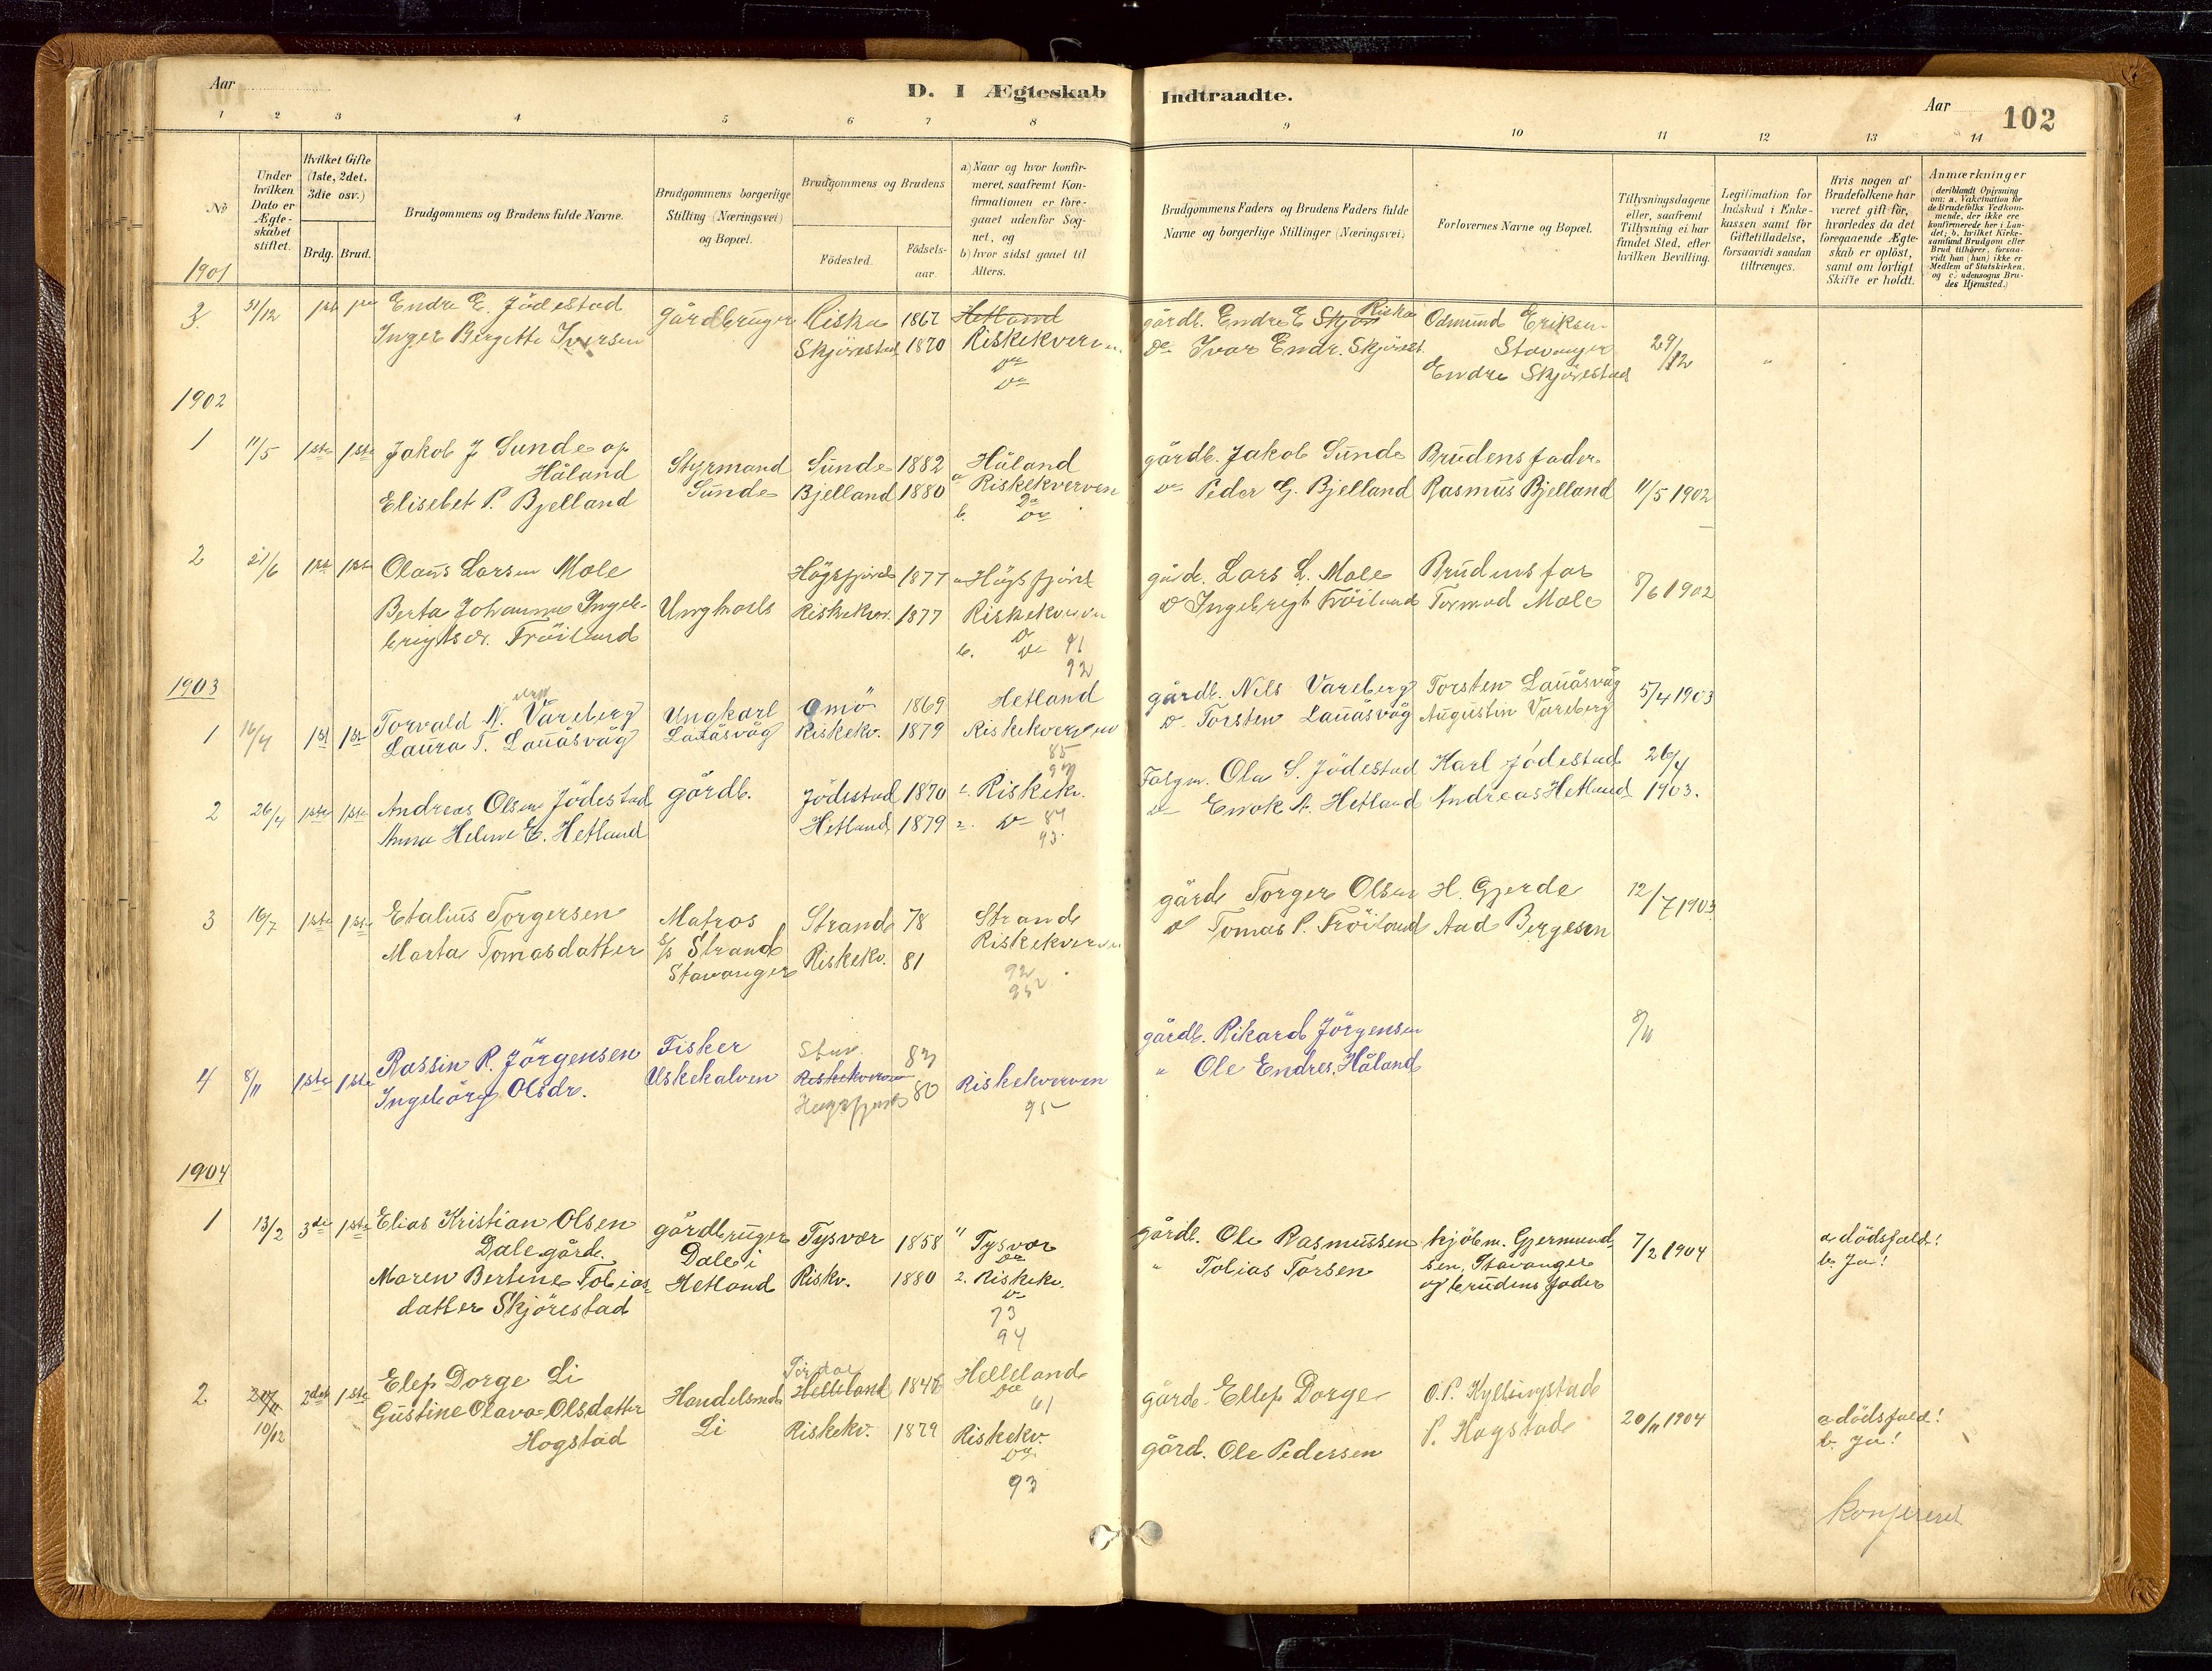 Aar
D. I Ægteskab Indtraadte.
Aar 102
1 2 3 4 5 6 7 8 9 10 11 12 13 14
No
Under hvilken Dato er Ægte-skabet stiftet.
Hvilket Gifte (1ste, 2det, 3die osv.)
Brdg. Brud.
Brudgommens og Brudens fulde Navne.
Brudgommens borgerlige Stilling (Næringsvei) og Bopæl.
Brudgommens og Brudens
Födested.
Födsels-aar.
a) Naar og hvor konfir-
meret, saafremt Kon-
firmationen er fore-
gaaet udenfor Sog-
net, og
b) hvor sidst gaaet til
Alters.
Brudgommens Faders og Brudens Faders fulde
Navne og borgerlige Stillinger (Næringsvei)
Forlovernes Navne og Bopæl.
Tillysningsdagene
eller, saafremt
Tillysning ei har
fundet Sted, efter
hvilken Bevilling.
Legitimation for
Indskud i Enke-
kassen samt for
Giftetilladelse,
forsaavidt saadan
tiltrænges.
Hvis nogen af
Brudefolkene har
været gift för,
hvorledes da det
foregaaende Ægte-
skab er oplöst,
samt om lovligt
Skifte er holdt.
Anmærkninger
(deriblandt Oplysning
om: a. Vakcination for
de Brudefolks Vedkom-
mende, der ikke ere
konfirmerede her i Lan-
det; b. hvilket Kirke-
samfund Brudgom eller
Brud tilhører, forsaa-
vidt han (hun) ikke er
Medlem af Statskirken,
og c. udensogns Bru-
des Hjemsted.)
1901
3. 31/12 1ste 1ste Endre E. Jödestad gårdbruger Riska 1867 Hetland gårdb. Endre E Skjör Riska Odmund Eriksen
Inger Bergitte Iversen Skjörestad 1870 Riskekverven do Ivar Endr. Skjörest. Stavanger 29/12 "
do
do
Endre Skjörestad
1902
1 11/5 1ste 1ste Jakob J Sunde op Håland Styrmand Sunde 1882 Håland gårdb. Jakob Sunde Brudens fader
Elisebet P. Bjelland Sunde Bjelland 1880 a Riskekverven do Peder G. Bjelland Rasmus Bjelland 11/5 1902
do
b. do
2 21/6 1ste 1ste Olaus Larsen Mole Högsfjord 1877 a Högsfjord gårdb. Lars L. Mole Brudens far
Berta Johanne Ingeb- Ungkarls Riskekvv. 1877 Riskekverven do Ingebrigt Fröiland Tormod Mole 8/6 1902
brigtsdr. Fröiland do
b. do 91
92
1903
1 16/4 1ste 1ste Torvald N. Vareberg Ungkarl Omö 1869 Hetland gårdb. Nils Vareberg Torsten Lauåsvåg 5/4 1903
Laura T. Lauåsvåg Lauåsvåg Riskekv. 1879 Riskekverven do Torsten Lauåsvåg Augustin Vareberg
85
93
2 26/4 1ste 1ste Andreas Olsen Jödestad gårdb. Jödestad 1870 Riskekv. Ola S. Jödestad Karl Jödestad 26/4
Anna Helene E. Hetland Hetland 1879 do 84 do Enok A. Hetland Andreas Hetland 1903.
93.
3 16/7 1ste 1ste Etalius Torgersen Matros Strand 78 Strand gårdb Torger Olsen H. Gjerde 12/7 1903
Marta Tomasdatter S/s Strand Riskekv. 81 Riskekverven do Tomas P. Fröiland Aad Bergesen
Stavanger 92
95
4 8/11 1ste 1ste Rassin R. Jörgensen Fisker Stav. 83 gårdb. Rikard Jörgensen 8/11
Ingebörg Olsdr. Uskekalven Riskekverven 80 Riskekverven " Ole Endres. Håland
Høgsfjord 95
1904
1 13/2 3die 1ste Elias Kristian Olsen gårdbruger Tysvær 1858 " Tysvær gårdb. Ole Rasmussen kjöbm. Gjermund- 7/2 1904 a dödsfald!
Dale gårdb. Dale i do sen, Stavanger b. Ja!
Maren Bertine Tobias- Hetland Riskv. 1880 2. Riskekv. " Tobias Torsen og brudens fader
datter Skjörestad do
73
94
2. 20/11 2det 1ste Elef Dorge Li Handelsmd. Tördal Helleland 1846 Helleland gårdb. Ellef Dorge O.P. Kyllingstad 20/11 1904
10/12 Gustine Olava Olsdatter Li do P. Hogstad a dödsfald!
Hogstad 61 b. Ja!
Riskekv. 1879 Riskekv. gård. Ole Pedersen
do
93
Konfereret